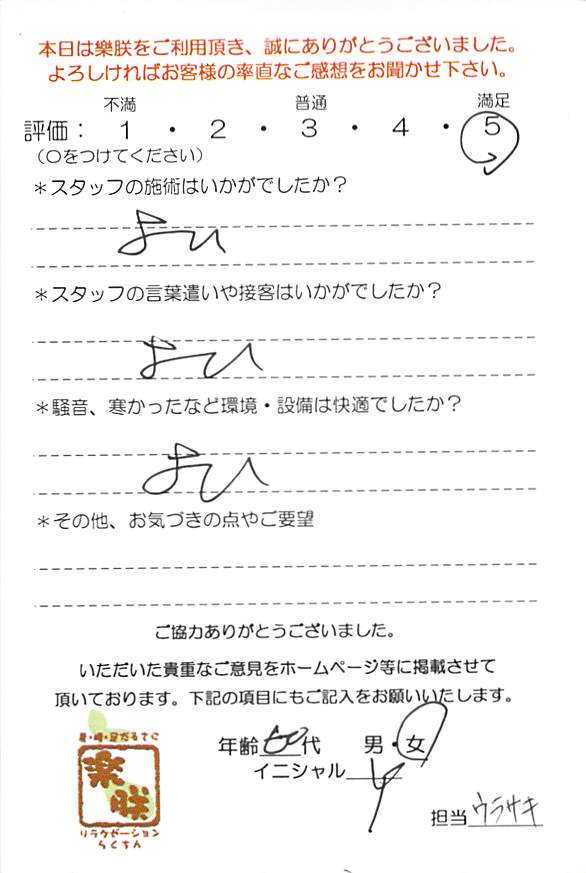 本日は樂朕をご利用頂き、誠にありがとうございました。
よろしければお客様の率直なご感想をお聞かせ下さい。
不満 普通 満足
評価： 1 ・ 2 ・ 3 ・ 4 ・ 5
（○をつけてください）
＊スタッフの施術はいかがでしたか？
よい
＊スタッフの言葉遣いや接客はいかがでしたか？
よい
＊騒音、寒かったなど環境・設備は快適でしたか？
よい
＊その他、お気づきの点やご要望
ご協力ありがとうございました。
いただいた貴重なご意見をホームページ等に掲載させて
頂いております。下記の項目にもご記入をお願いいたします。
肩・腰・足だるさに
樂朕
リラクゼーション
らくちん
年齢 60代 男・女
イニシャル Y
担当 ウラサキ